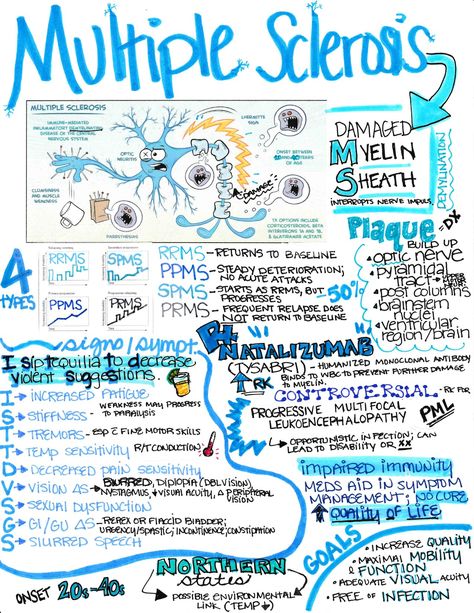 Multiple Sclerosis
MULTIPLE SCLEROSIS
IMMUNE-MEDIATED
INFLAMMATORY DEMYELINATING
DISEASE OF THE CENTRAL
NERVOUS SYSTEM
OPTIC
NEURITIS
LHERMITTE
SIGN
ONSET BETWEEN
20 AND 40 YEARS
OF AGE
CLUMSINESS
AND MUSCLE
WEAKNESS
PARESTHESIAS
TX OPTIONS INCLUDE
CORTICOSTEROIDS, BETA
INTERFERONS 1A AND 1B,
& GLATIRAMER ACETATE
DAMAGED
MYELIN
SHEATH
INTERRUPTS NERVE IMPULS.
DEMYLINATION
Plaque = DX
BUILD UP
• optic nerve
• pyramidal
tract
• post columns
• brainstem
nuclei
• ventricular
region/brain
4
TYPES
RRMS
SPMS
PPMS
PRMS
RRMS - RETURNS TO BASELINE
PPMS - STEADY DETERIORATION;
NO ACUTE ATTACKS
SPMS - STARTS AS RRMS, BUT
PROGRESSES
50%
PRMS - FREQUENT RELAPSE DOES
NOT RETURN TO BASELINE
signs/sympt.
I sip tequilia to decrease
violent suggestions.
I → INCREASED FATIGUE
S → STIFFNESS - WEAKNESS MAY PROGRESS
TO PARALYSIS
T → TREMORS - ESP FINE MOTOR SKILLS
T → TEMP SENSITIVITY R/T CONDUCTION
D → DECREASED PAIN SENSITIVITY
V → VISION ∆S → BLURRED, DIPLOPIA (DBL VISION)
NYSTAGMUS, ↓ VISUAL ACUITY, ∆ PERIPHERAL
VISION
S → SEXUAL DYSFUNCTION
G → GI/GU ∆S - REFLEX OR FLACCID BLADDER;
URGENCY/SPASTIC; INCONTINENCE; CONSTIPATION
S → SLURRED SPEECH
ONSET 20s-40s
NORTHERN
states
POSSIBLE ENVIRONMENTAL
LINK (TEMP ↓)
Rx
NATALIZUMAB
(TYSABRI) → HUMANIZED MONOCLONAL ANTIBODY
BINDS TO WBC TO PREVENT FURTHER DAMAGE
TO MYELIN.
↑ RK
CONTROVERSIAL - RK FOR
PROGRESSIVE MULTIFOCAL
LEUKOENCEPHALOPATHY
PML
↳ OPPORTUNISTIC INFECTION; CAN
LEAD TO DISABILITY OR XX
impaired immunity
MEDS AID IN SYMPTOM
MANAGEMENT; NO CURE
↑ QUALITY OF LIFE
GOALS
• INCREASE QUALITY
• MAXIMAL MOBILITY
& FUNCTION
• ADEQUATE VISUAL ACUITY
• FREE OF INFECTION